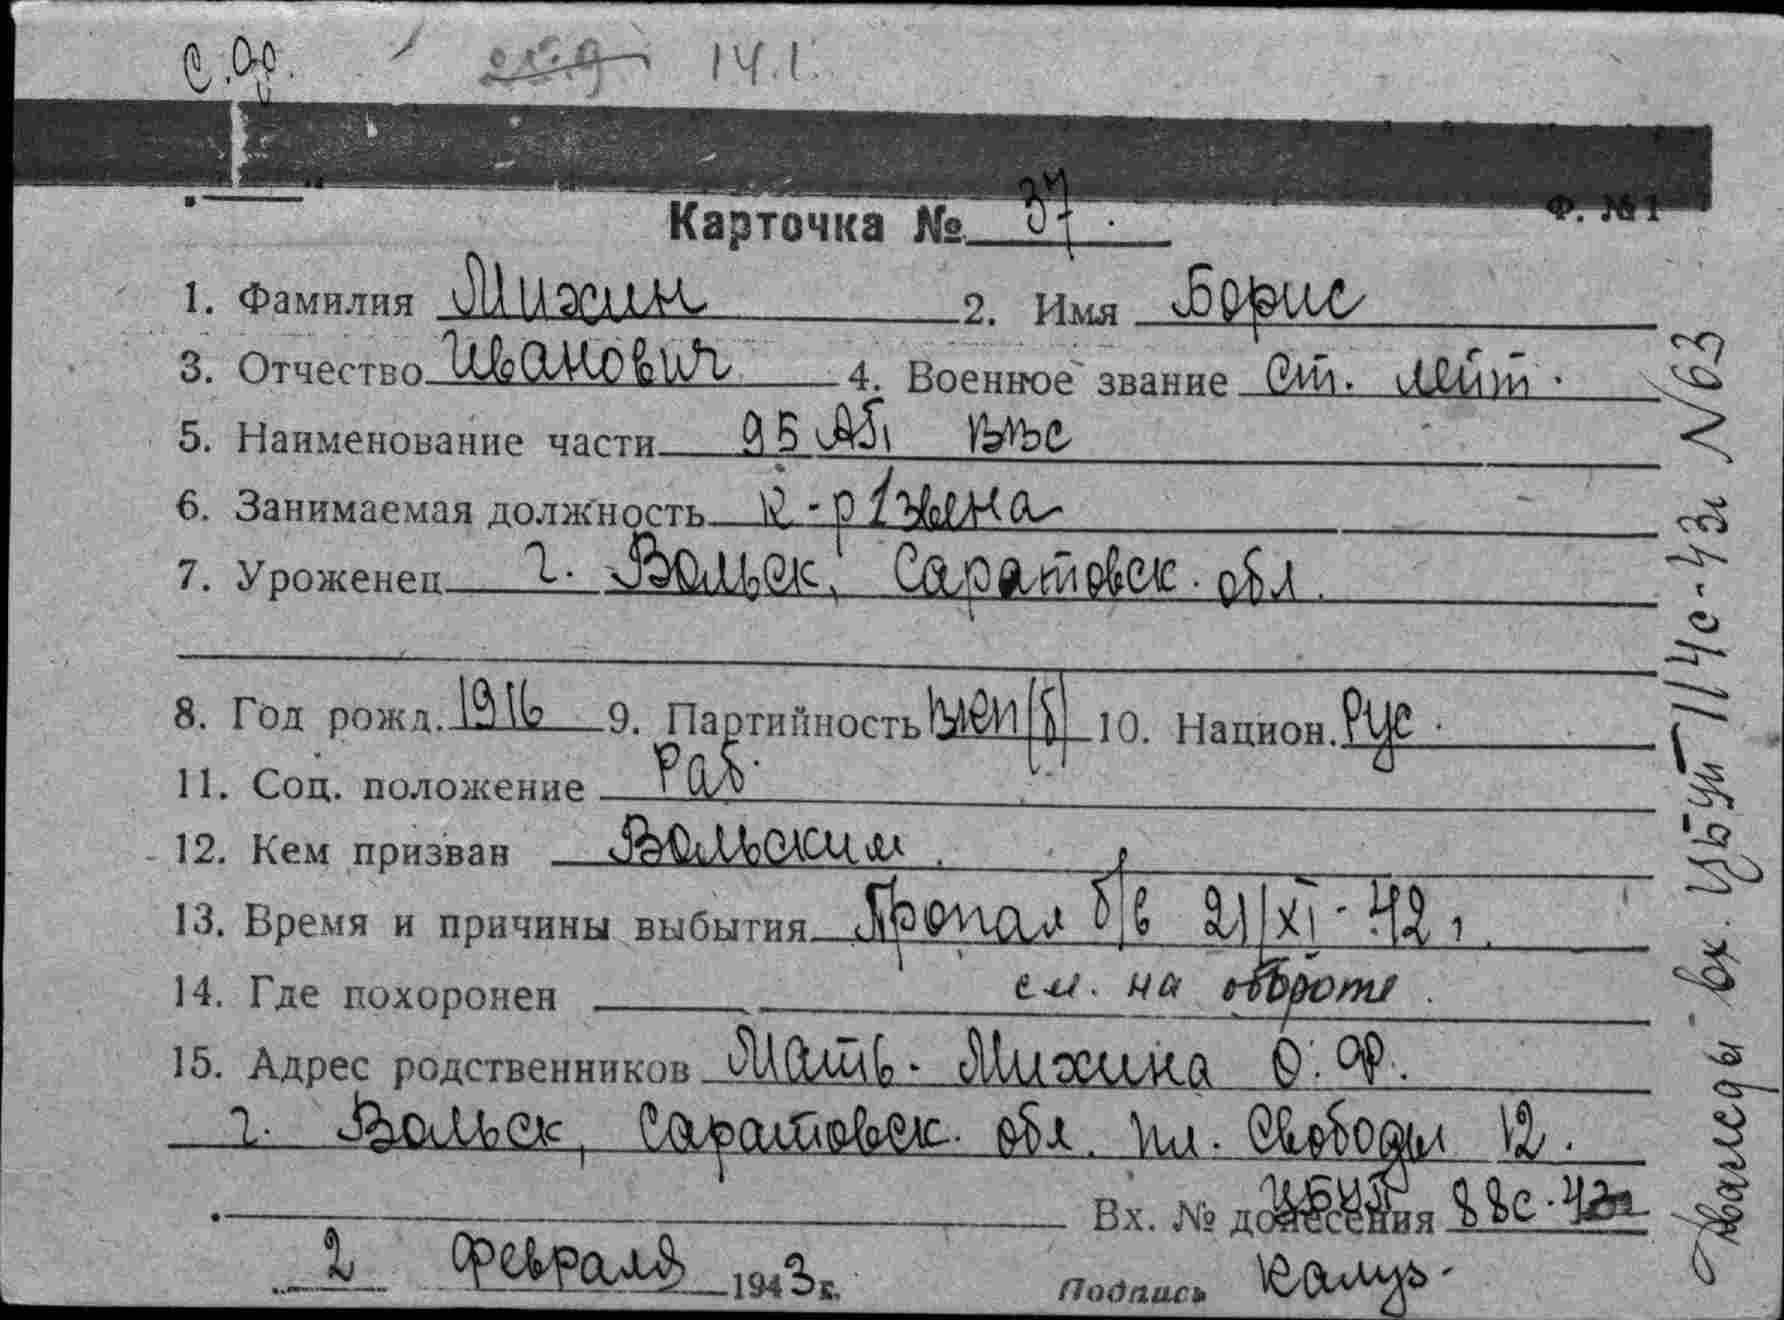 с.др. 14.1.
Ф. №1
Карточка № 37.
1. Фамилия Михин 2. Имя Борис
3. Отчество Иванович 4. Военное звание Ст. лейт.
5. Наименование части 95 АП ВВС
6. Занимаемая должность к-р звена
7. Уроженец г. Вольск, Саратовск. обл.
8. Год рожд. 1916 9. Партийность ВКП(б) 10. Национ. Рус.
11. Соц. положение Раб.
12. Кем призван Вольским.
13. Время и причины выбытия Пропал б/в 21/XI-42 г.
14. Где похоронен см. на обороте.
15. Адрес родственников Мать - Михина О. Ф.
г. Вольск, Саратовск. обл. пл. Свободы 12.
Вх. № донесения 88с-43г
2 февраля 1943 г. Подпись
Дважды вх. 114с-43г N 63